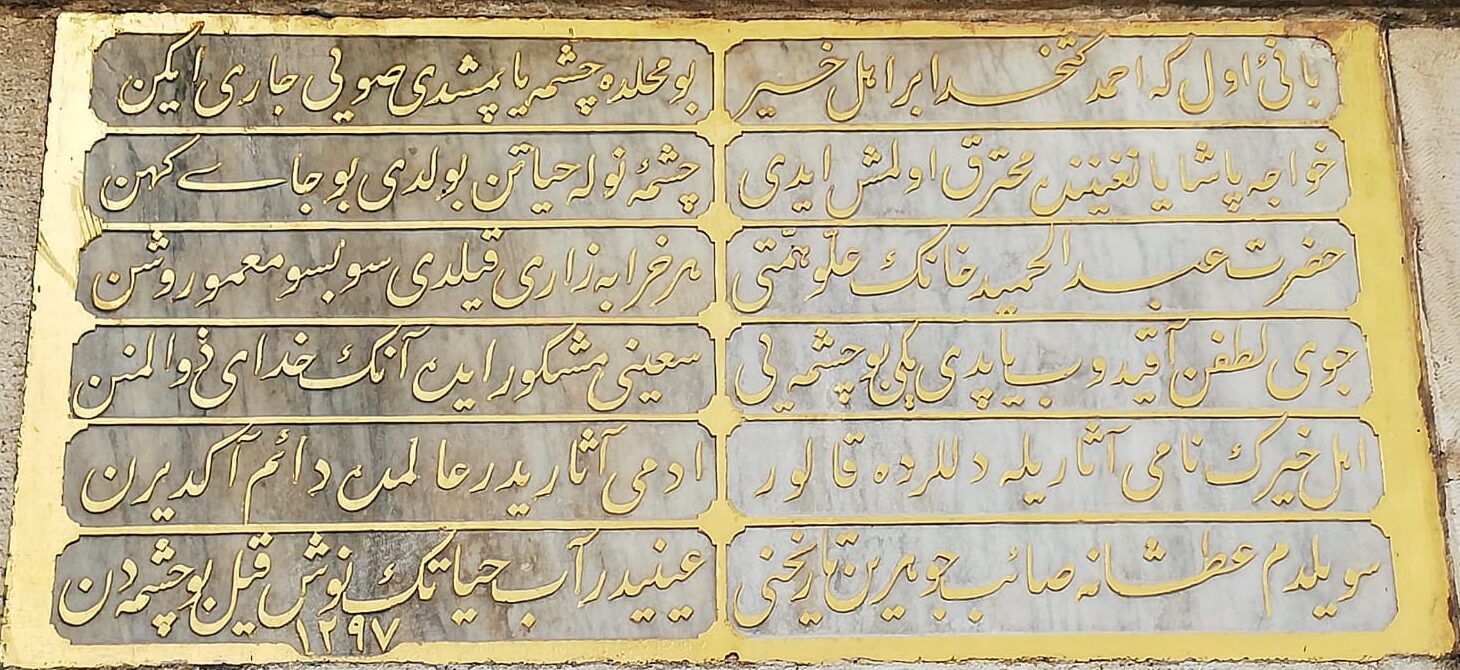 بانئ اول كه احمد كتخدا بر اهل خير
بو محلده چشمه ياپمشدى صويى جارى ايكن
خواجه پاشا يانغيننده محترق اولمش ايدى
چشمۀ نوله حياتن بولدى بو جاے كهن
حضرت عبد الحميد خانك علو همّتى
هر خرابه زارى قيلدى سو بسو معمور روشن
جوى لطفن آقيدوب ياپدى يكى بو چشمه يى
سعينى مشكور ايده آنك خداى ذو المنن
اهل خيرك نامى آثاريله دللرده قالور
ادمى آثاريدر عالمده دائم آكديرن
سويلدم عطشانه صائب جوهرين تاريخنى
عينيدر آب حياتك نوش قيل بو چشمه دن
١٢٩٧